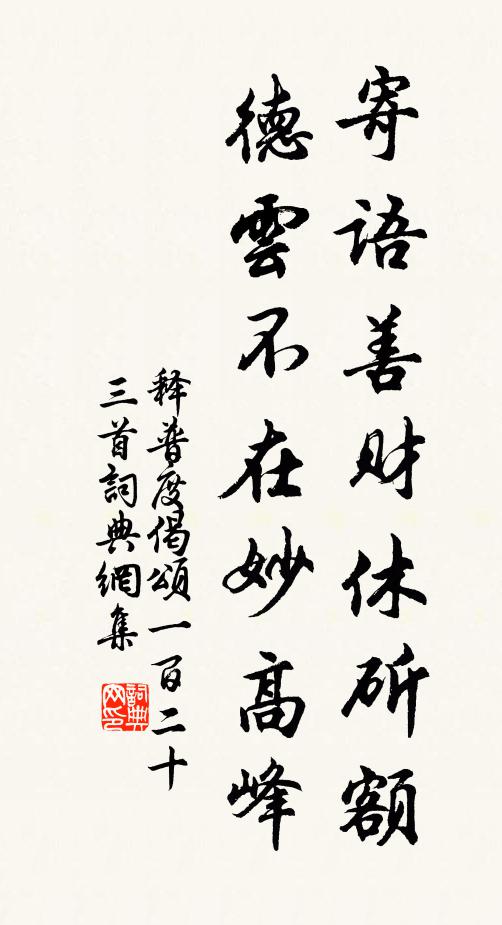 寄語善财休斫額
德雲不在妙高峰
释普度偈頌一百二十
三首詞典網集
詞典
网印